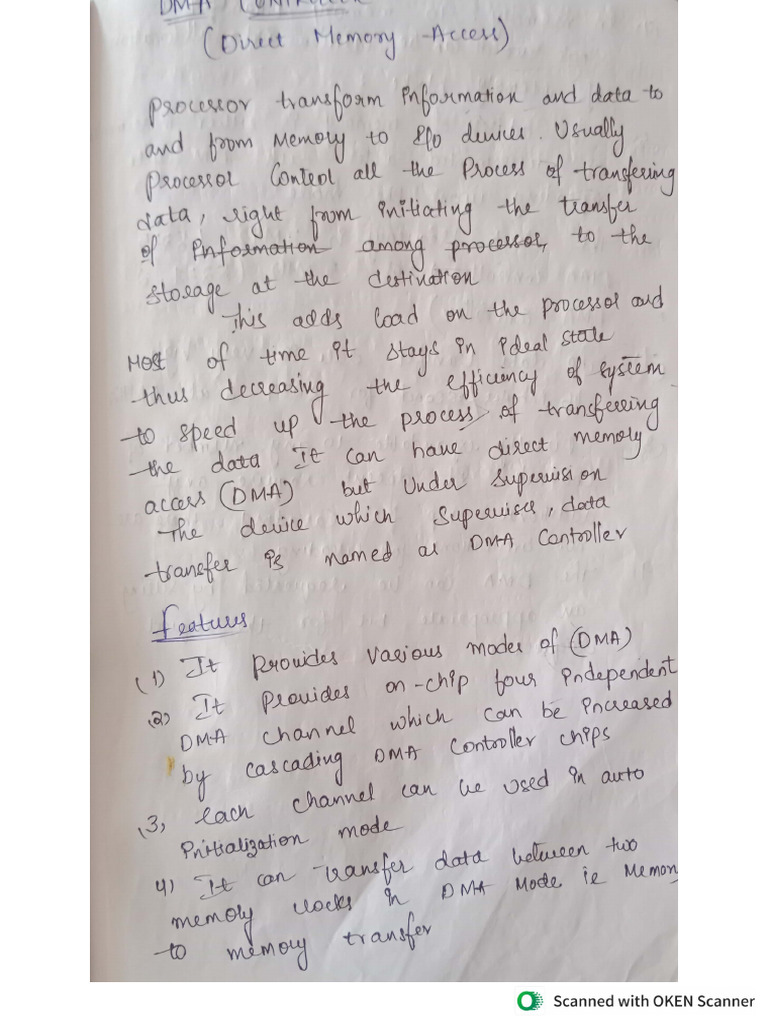 DMA CONTROLLER
(Direct Memory Access)
Processor transform information and data to
and from Memory to I/O devices. Usually
Processor Control all the Process of transfering
data, right from initiating the transfer
of information among processor, to the
storage at the destination
This adds load on the processor and
Most of time it stays in ideal state
thus decreasing the efficiency of system
to speed up the process of transferring
the data It can have direct memory
access (DMA) but under supervision
The device which supervises, data
transfer is named as DMA Controller
Features
(1) It provides various modes of (DMA)
(2) It provides on-chip four independent
DMA channel which can be increased
by cascading DMA controller chips
(3, Each channel can be used in auto
initialization mode
4) It can transfer data between two
memory blocks in DMA Mode ie Memory
to memory transfer
Scanned with OKEN Scanner